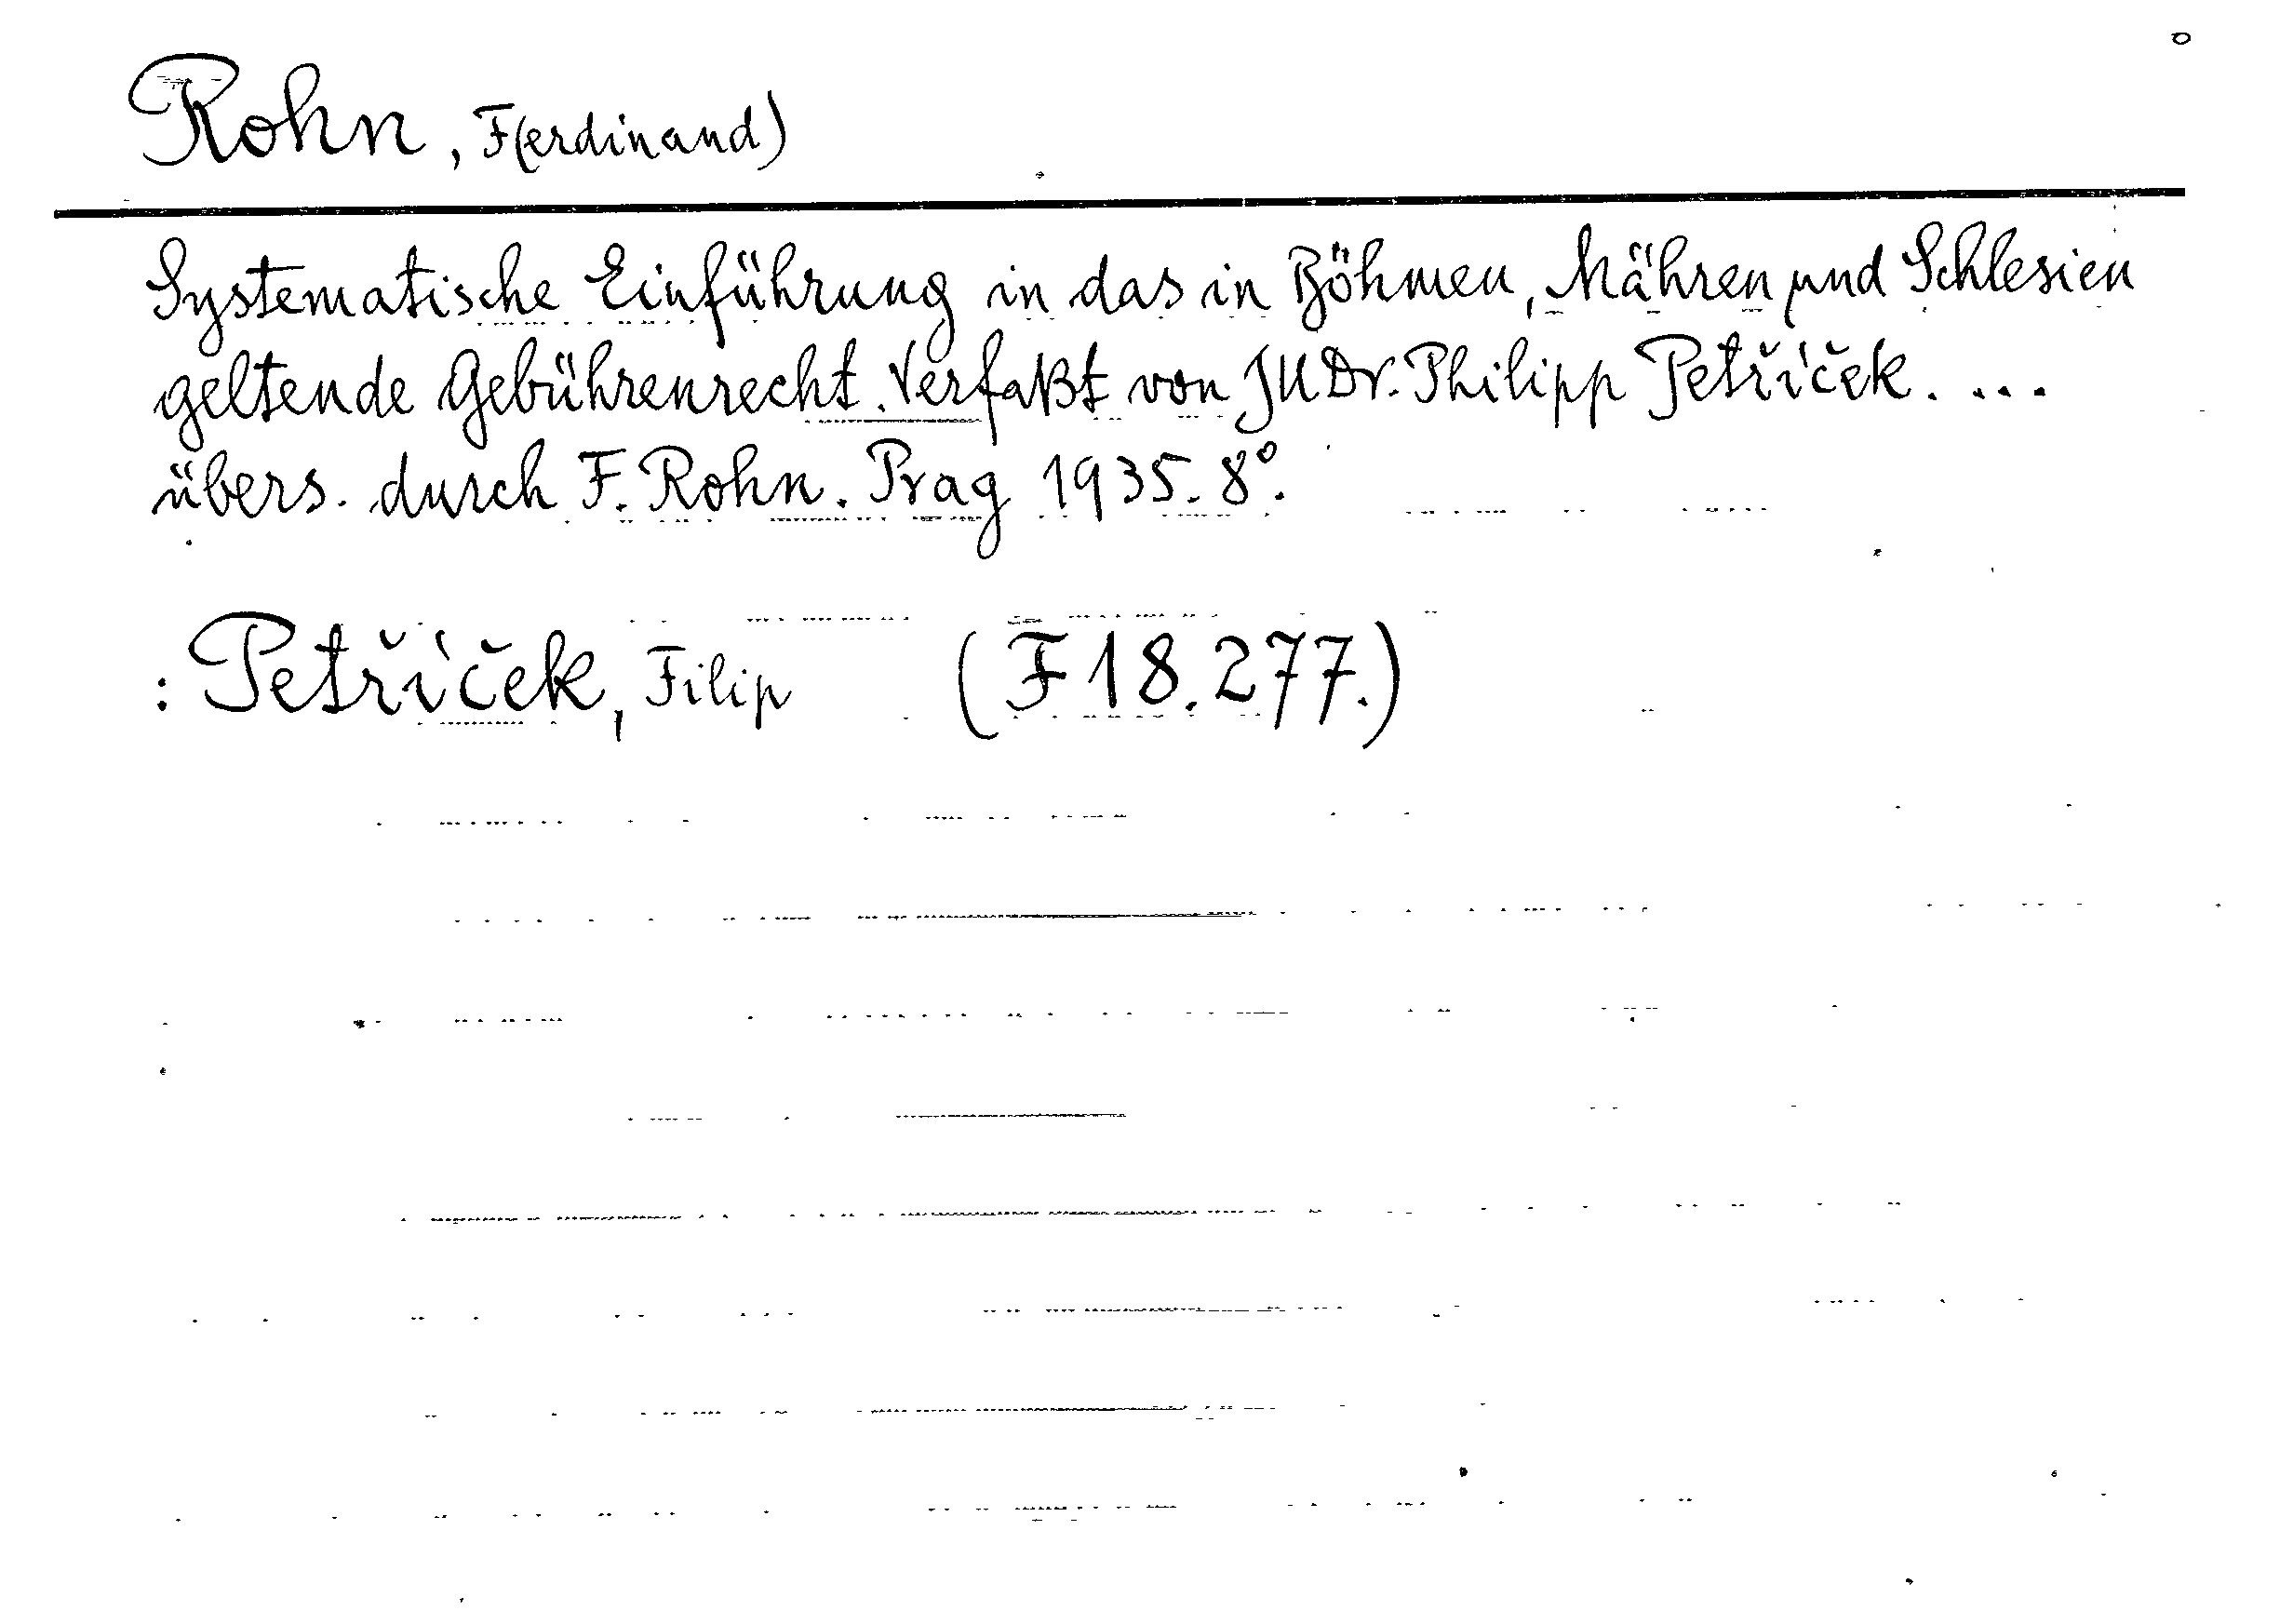 Rohn, F(erdinand)
Systematische Einführung in das in Böhmen, Mähren und Schlesien
geltende Gebührenrecht. Verfaßt von JUDr. Philipp Petříček. ...
übers. durch F. Rohn. Prag 1935. 8°.
: Petříček, Filip (F 18.277.)